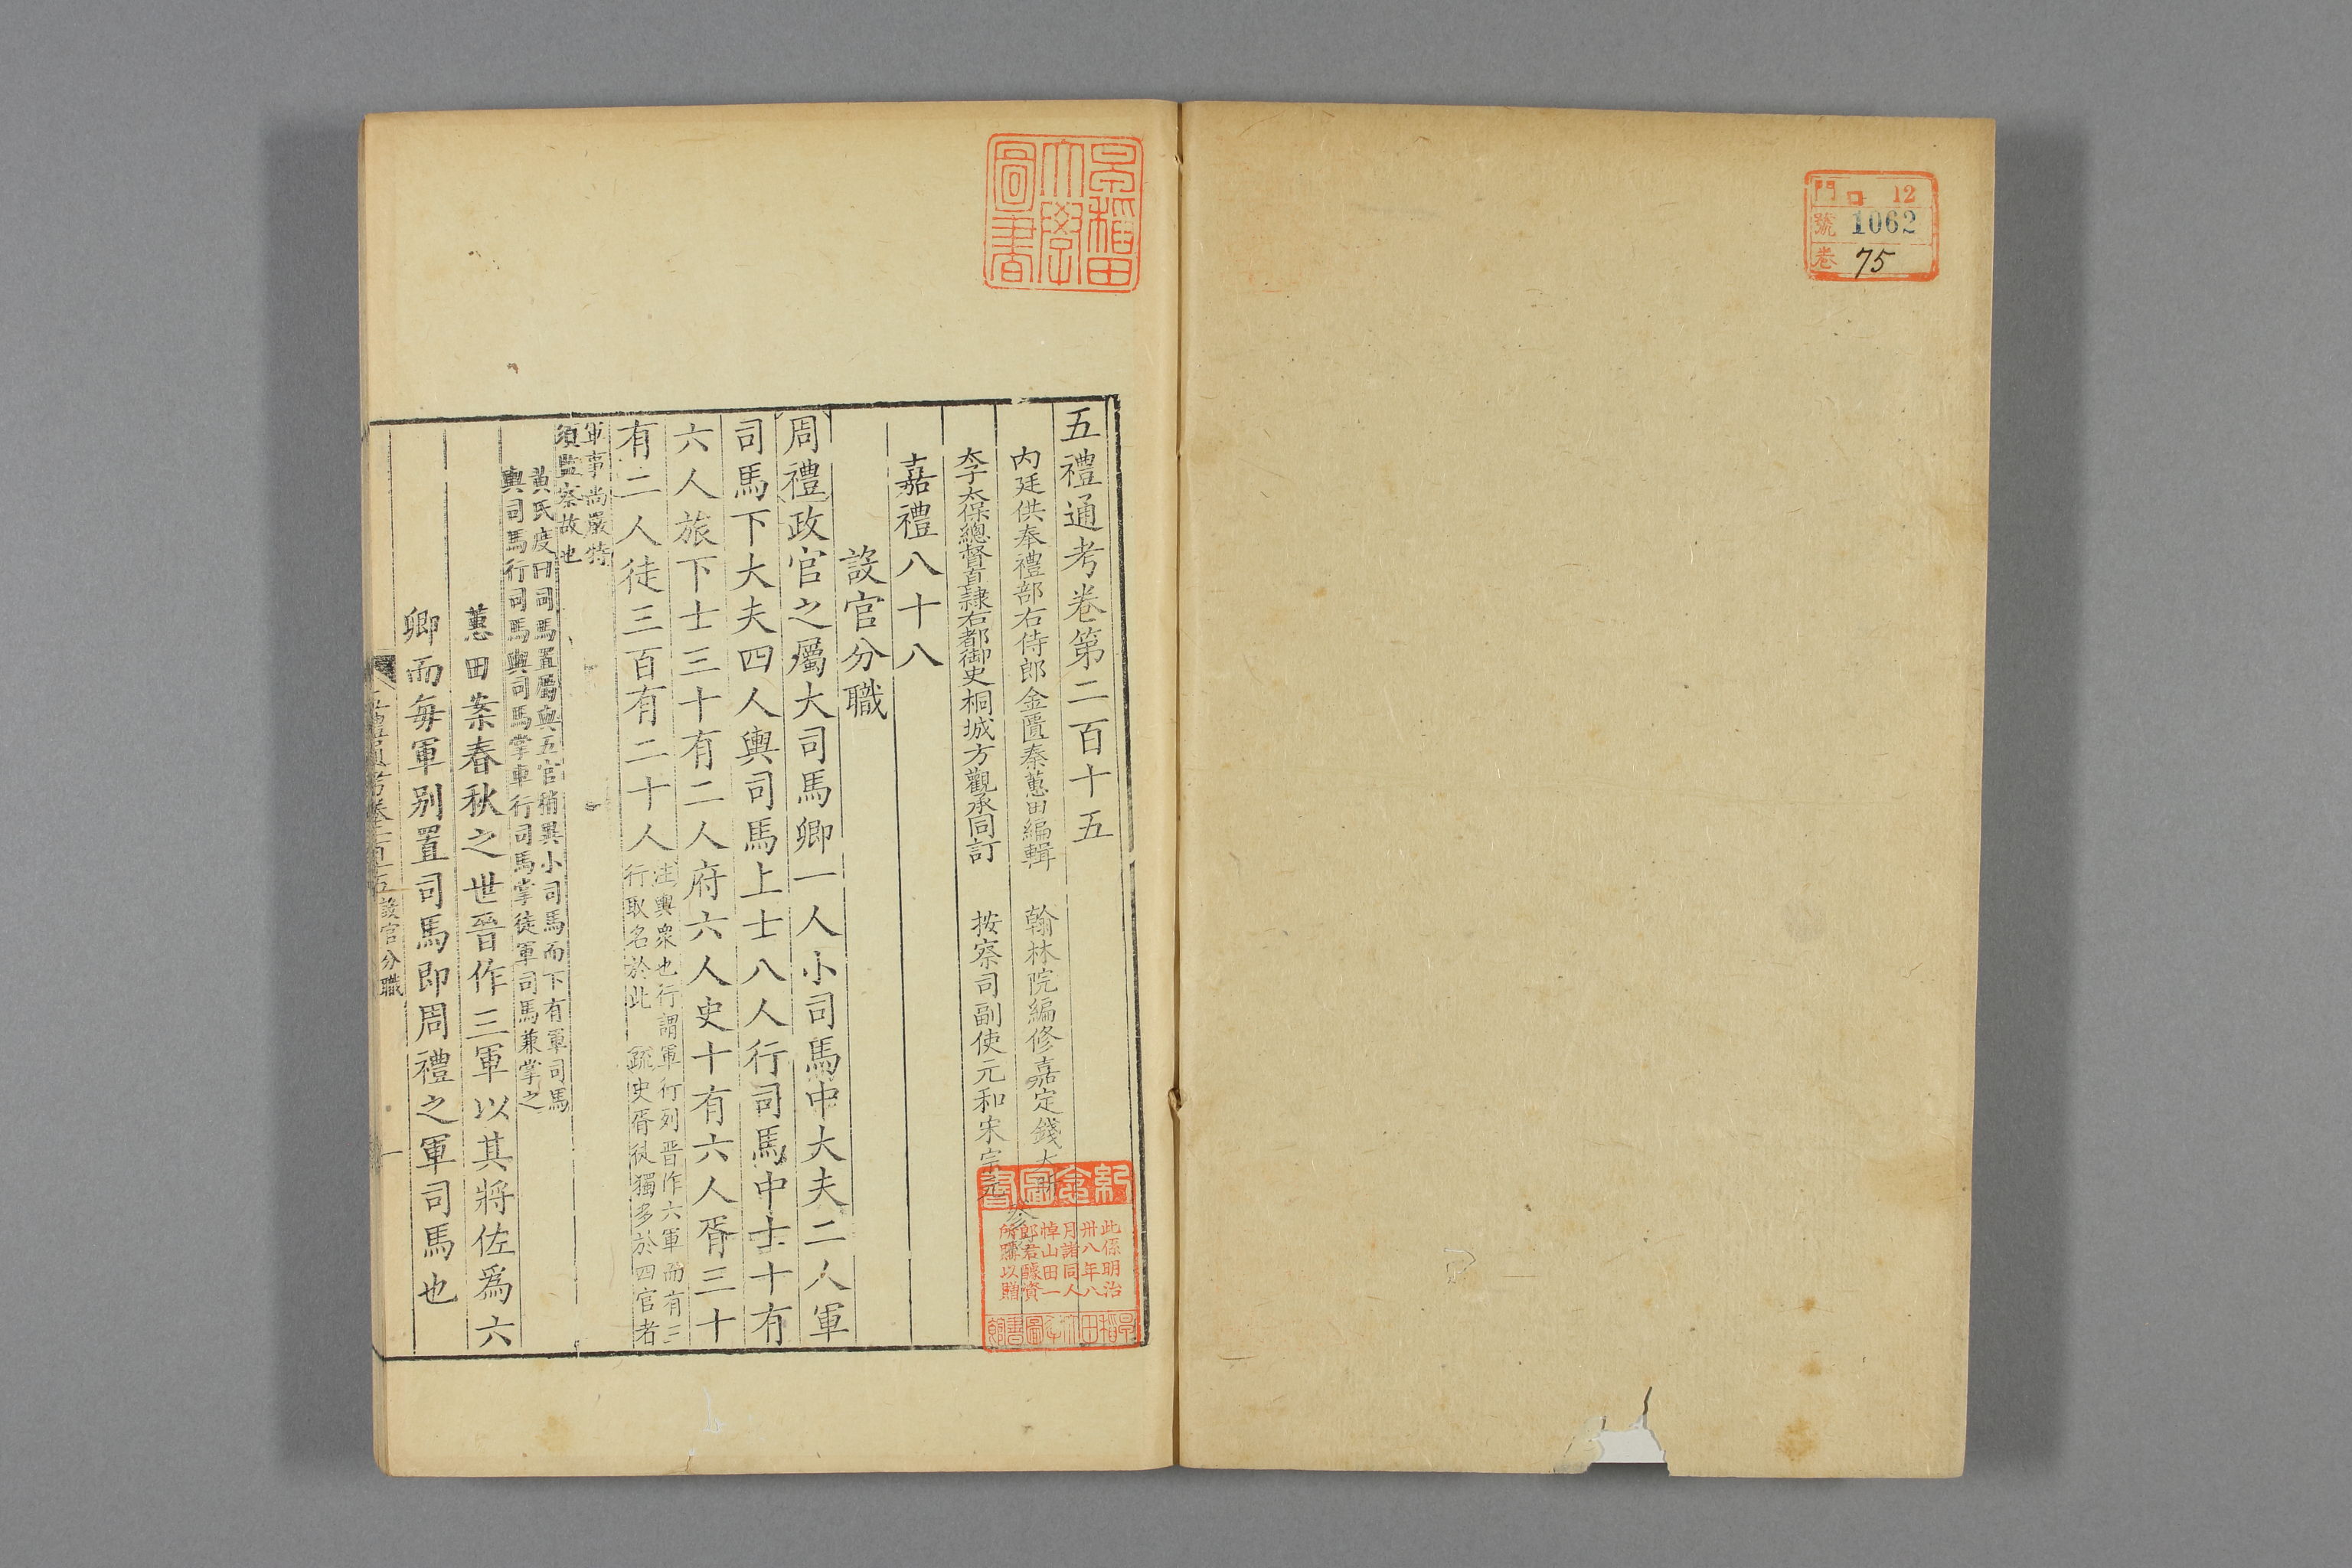 門 ロ 12
號 1062
卷 75
早稲田
大學
圖書
五禮通考卷第二百十五
內廷供奉禮部右侍郎金匱秦蕙田編輯 翰林院編修嘉定錢大昕
太子太保總督直隸右都御史桐城方觀承同訂 按察司副使元和宋宗元
參
嘉禮八十八
設官分職
周禮政官之屬大司馬卿一人小司馬中大夫二人軍
司馬下大夫四人輿司馬上士八人行司馬中士十有
六人旅下士三十有二人府六人史十有六人胥三十
有二人徒三百有二十人
注輿衆也行謂軍行列晉作六軍而有三
行取名於此 疏史胥徒獨多於四官者
軍事尚嚴特
須監察故也
黃氏度曰司馬置屬與五官稍異小司馬而下有軍司馬
輿司馬行司馬輿司馬掌車行司馬掌徒軍司馬兼掌之
蕙田案春秋之世晉作三軍以其將佐爲六
卿而每軍別置司馬即周禮之軍司馬也
五禮通考卷二百十五 設官分職 一
紀念圖書
此係明治
卅八年八
月諸同人
悼山田一
郎君醵資
所購以贈
早稲田大學圖書館